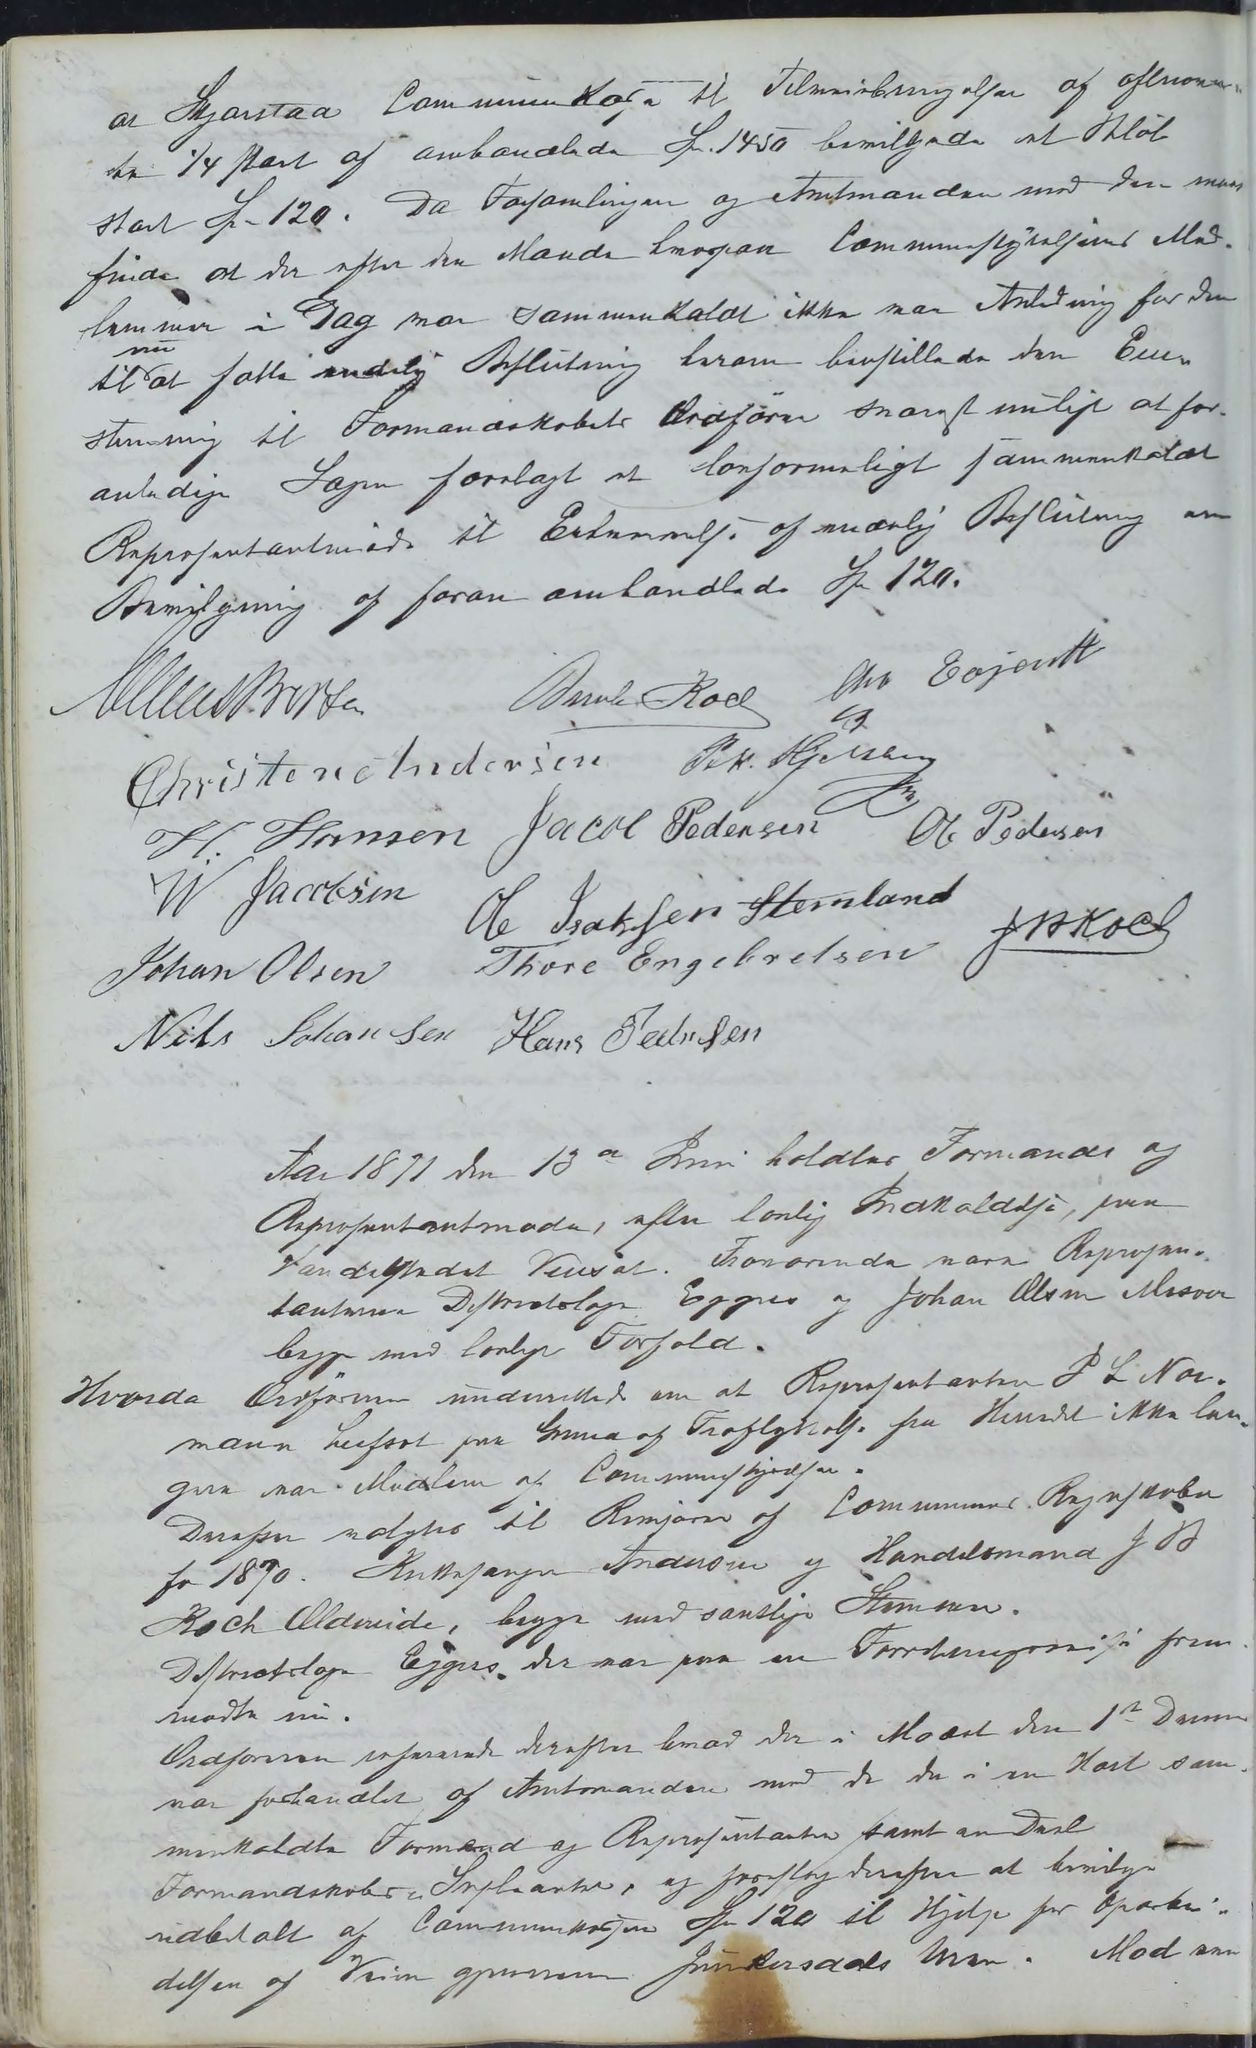 at Skjerstad Communekasse til Tilveiebringelse af ofte
¼ Part af omhandlede Spd. 1450 bevilgede et Beløb
stort Spd 120. Da Forsamlingen og Amtmanden med den maa
finde at der efter den Maade hvorpaa Communestyrelsens Med-
lemmer i Dag var sammenkaldt ikke var Anledning for den
til nu at fatte endelig Beslutning herom henstillede den Een-
stemmig til Formandskabets Ordfører snarest muligt at for-
anledige Sagen forelagt et lovformeligt sammenkaldt
Repræsentantmøde til Erhvervelse af endelig Beslutning om
Bevilgning af foran omhandlede Spd 120.
Koch
Christen Andersen
H. Hansen Jacob Pedersen Ole Pedersen
W Jacobsen Ole Isaksen Stemland
Johan Olsen Thore Engebretsen J B Koch
Nils Johansen Hans Pedersen
Aar 1871 den 13de Juni holdtes Formands og
Repræsentantmøde, efter lovlig Indkaldelse, paa
Thingstedet Venset. Fraværende vare Repræsen-
tanterne Districtslæge Eggers og Johan Olsen Misvær
begge med lovlige Forfald.
Hvorda Ordføreren underrettede om at Repræsentanten P L Nor-
mann paa Grund af Fraflyttelse fra Herredet ikke læn-
gere var Medlem af Communestyrelsen.
Derefter valgtes til Revisorer af Communens Regnskaber
for 1870. Kirkesanger Andersen og Handelsmand J B
Koch Oldereide, begge med samtlige Stemmer.
Districtslæge Eggers, der var paa en Forretningsreise frem-
mødte nu.
Ordføreren refererede derefter hvad der i Mødet den 1ste Dennes
var forhandlet af Amtmanden med de der i en Hast sam-
menkaldte Formænd og Repræsentanter samt en Deel
Formandskabs Suppleanter, og foreslog derefter at bevilge
udbetalt af Communekassen Spd 120 til Hjelp for Oparbei-
delsen af Veien gjennem Junkersdals Uren. Mod een